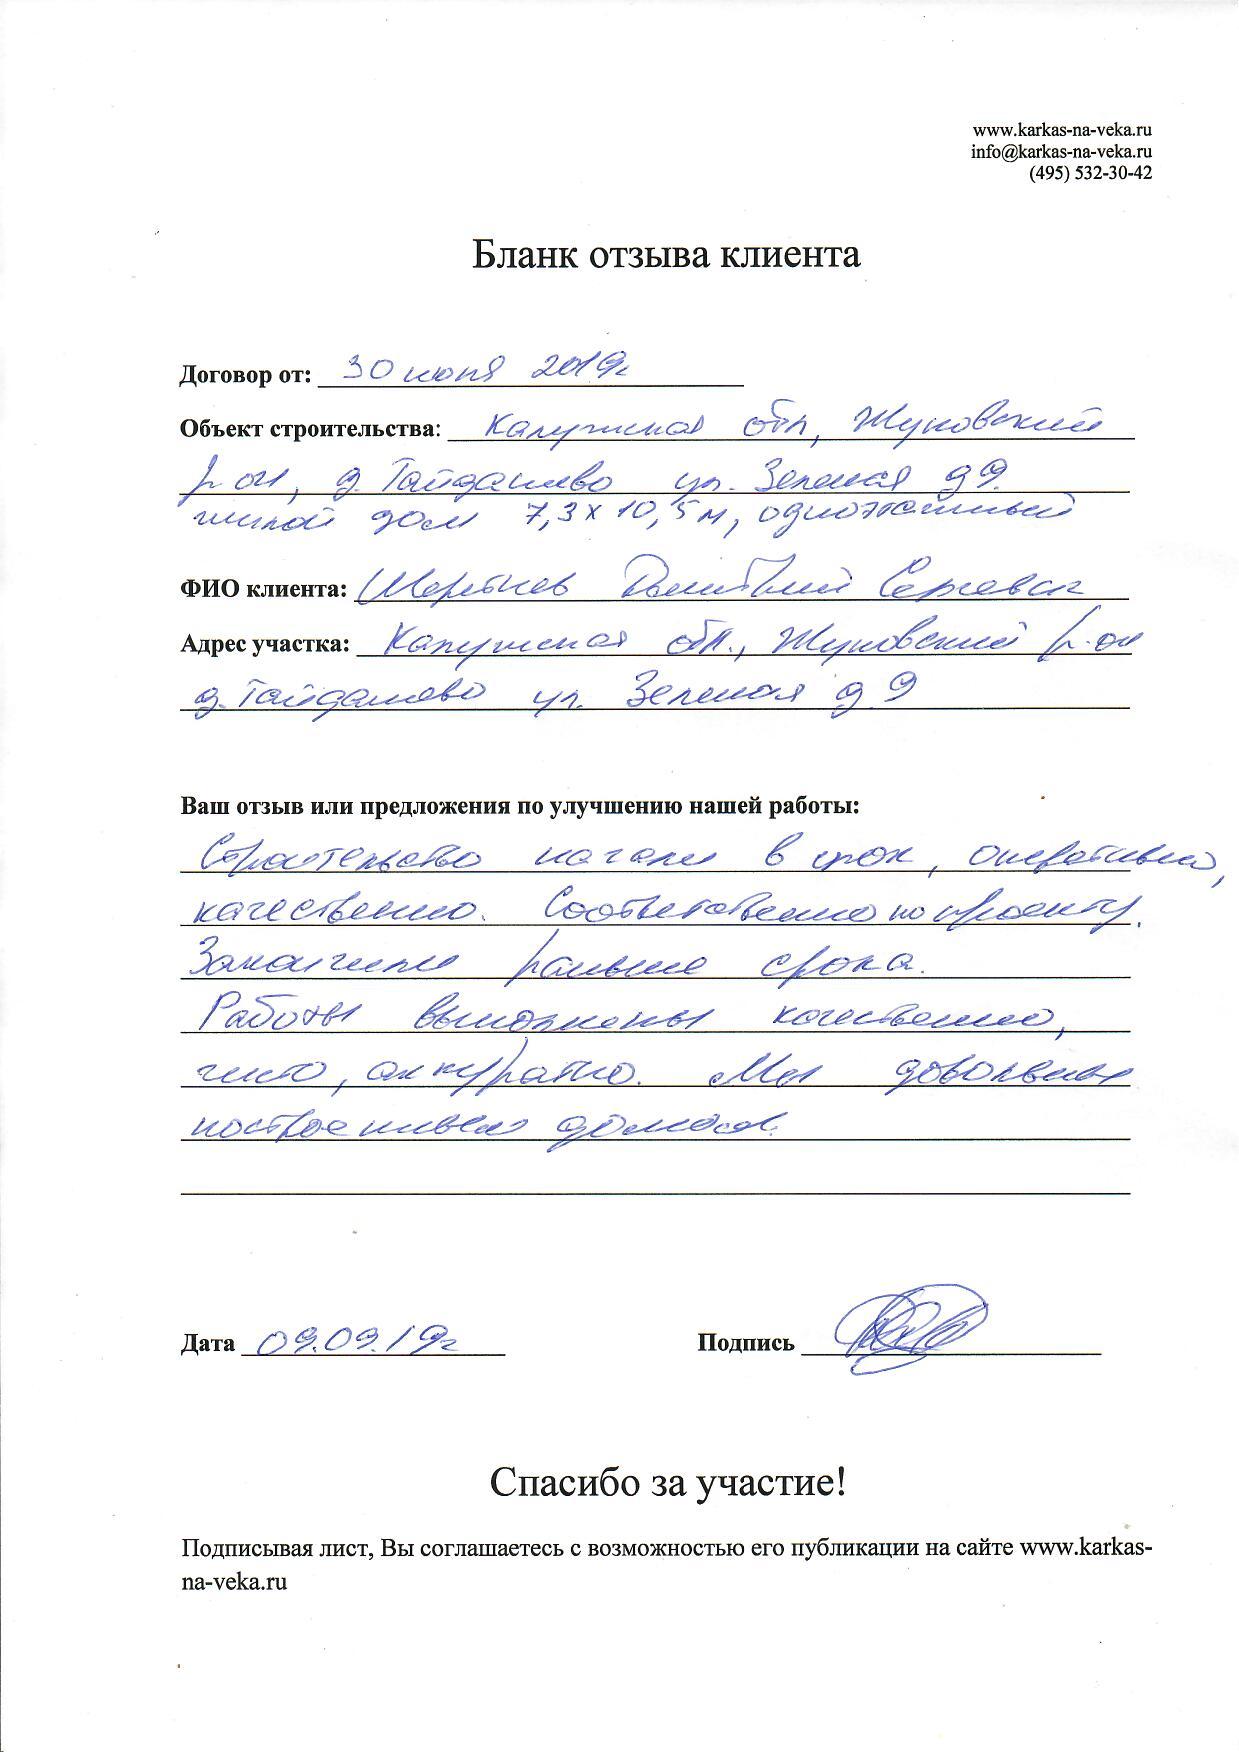 www.karkas-na-veka.ru
info@karkas-na-veka.ru
(495) 532-30-42
Бланк отзыва клиента
Договор от: 30 июня 2019г
Объект строительства: Калужская обл, Жуковский
р-он, д. Гайдашево ул. Зеленая д 9.
жилой дом 7,3 х 10,5м, одноэтажный
ФИО клиента: Дмитрий Сергеевич
Адрес участка: Калужская обл., Жуковский р-он
д. Гайдашево ул. Зеленая д 9
Ваш отзыв или предложения по улучшению нашей работы:
Строительство начали в срок, оперативно,
качественно. Соответственно по проекту.
Закончили раньше срока.
Работы выполнены качественно,
чисто, аккуратно. Мы довольны
построенным домом.
Дата 09.09.19г Подпись
Спасибо за участие!
Подписывая лист, Вы соглашаетесь с возможностью его публикации на сайте www.karkas-
na-veka.ru